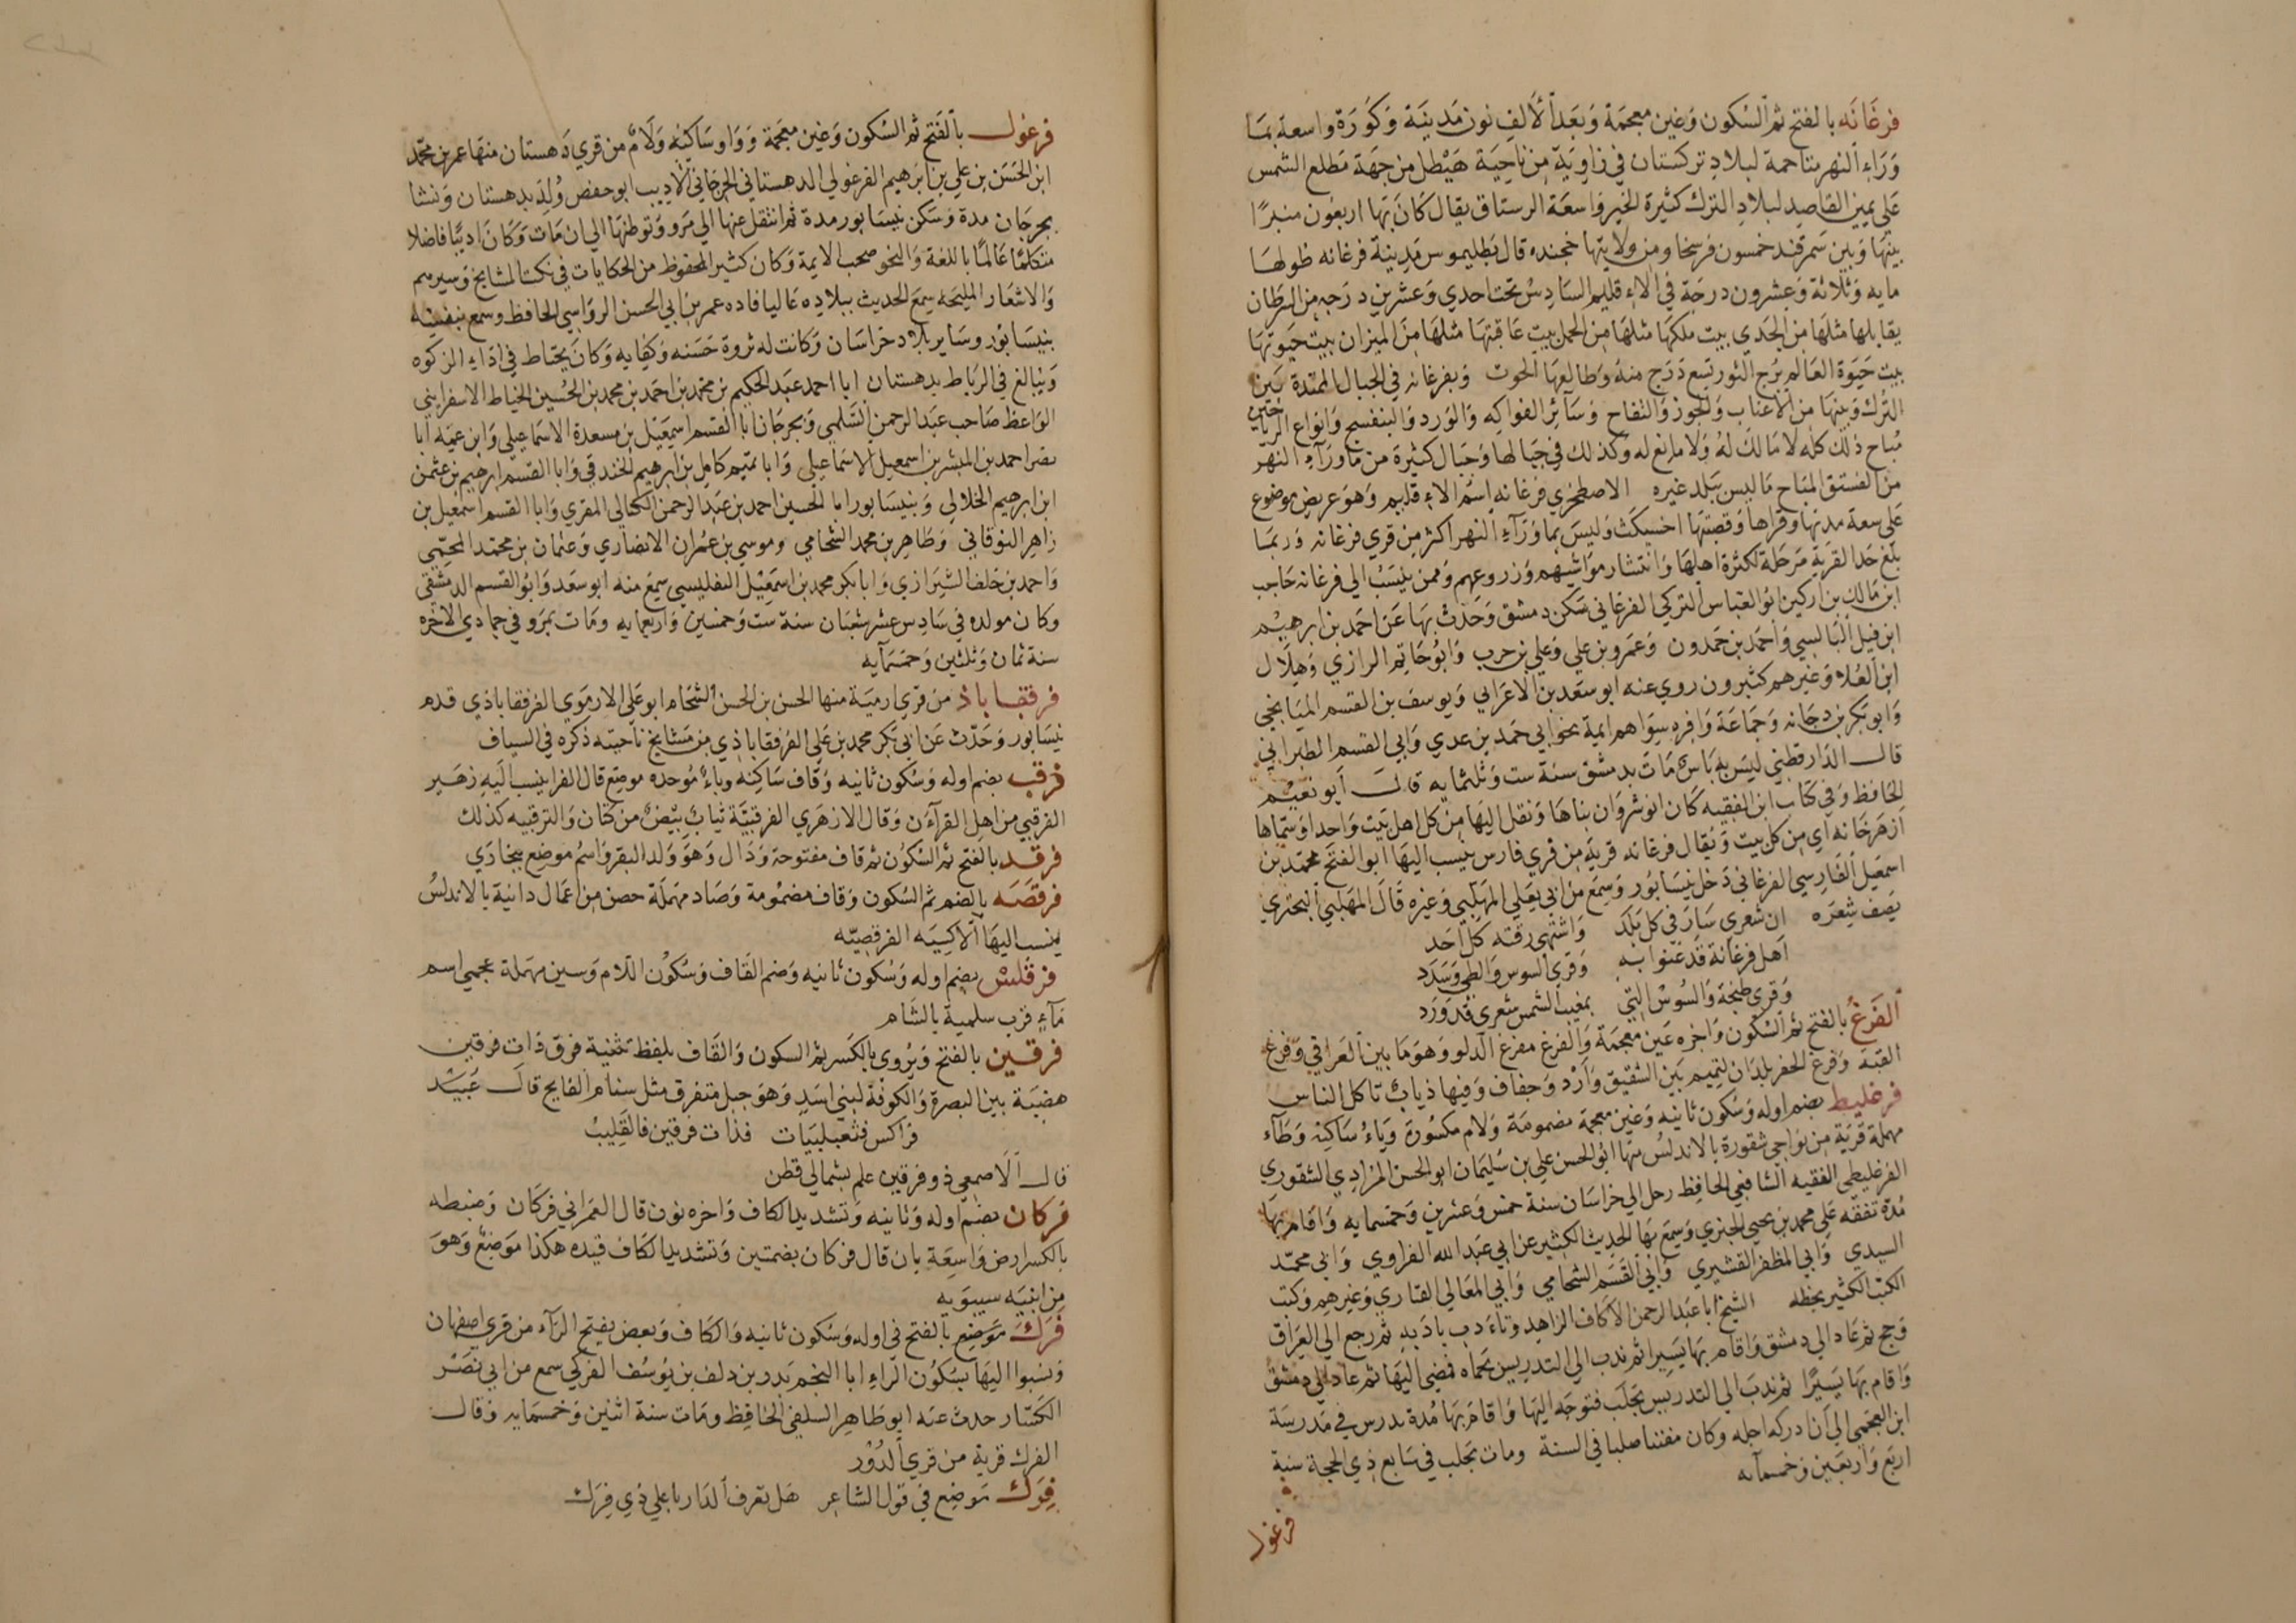 فرغانه بالفتح ثم السكون وغين معجمة وبعد الألف نون مدينة وكورة واسعة بما
وراء النهر متاخمة لبلاد تركستان في زاوية من ناحية هيطل من جهة مطلع الشمس
على يمين القاصد لبلاد الترك كثيرة الخير واسعة الرستاق يقال كان بها اربعون منبرا
بينها وبين سمرقند خمسون فرسخا ومن ولايتها خجنده قال بطليموس مدينة فرغانه طولها
مايه وثلاثة وعشرون درجة في الاقليم السادس تحت احدي وعشرين درجه من السرطان
يقابلها مثلها من الجدي بيت ملكها مثلها من الحمل بيت عاقبتها مثلها من الميزان بيت حيوتها
بيت حيوة العالم برج الثور تسع درج منه وطالعها الحوت وبفرغانه في الجبال الممتدة بين
الترك وبينها من الاعناب والجوز والتفاح وسائر الفواكه والورد والبنفسج وانواع الرياحين
مباح ذلك كله لا مالك له ولا مانع له وكذلك في جبالها وجبال كثيرة من ما وراء النهر
من الفستق المباح ما ليس ببلد غيره الاصطخري فرغانه اسم الاقليم وهو عريض موضوع
علي سعة مدنها وقراها وقصبتها اخسيكث وليس بما وراء النهر اكثر من قري فرغانه وربما
بلغ حد القرية مرحلة لكثرة اهلها وانتشار مواشيهم وزروعهم وممن ينسب الي فرغانه حاجب
ابن مالك بن اركين ابو العباس التركي الفرغاني سكن دمشق وحدث بها عن احمد بن ابرهيم
ابن فيل البالسي واحمد بن حمدون وعمرو بن علي وعلي بن حرب وابو حاتم الرازي وهلال
ابن العلاء وغيرهم كثيرون روي عنه ابو سعد بن الاعرابي ويوسف بن القسم الميانجي
وابو بكر بن دجانه وجماعة وافره سواهم ايمة نحو ابي حمد بن عدي وابي القسم الطبراني
قال الدارقطني ليس به باس مات بدمشق سنة ست وثلثمايه قال ابو نعيم
الحافظ وفي كتاب ابن الفقيه كان انوشروان بناها ونقل اليها من كل اهل بيت واحدا وسماها
ازهرخانه اي من كل بيت ويقال فرغانه قرية من قري فارس ينسب اليها ابو الفتح محمد بن
اسمعيل الفارسي الفرغاني دخل نيسابور وسمع من ابي يعلي المهلبي وغيره قال المهلبي البحتري
يصف شعره ان شعري سار في كل بلد واشتهي رقته كل احد
اهل فرغانة قد غنوا به وقري السوس والطي وسدد
وقري طنجة والسوس التي بمغيب الشمس شعري قد ورد
الفرغ بالفتح ثم السكون واخره غين معجمة والفرغ مفرغ الدلو وهو ما بين العراقي وفرغ
القبة وفرغ الحفر بلدان لتميم بين الشقيق وارد وجفاف وفيها ذياب تاكل الناس
فرغليط بضم اوله وسكون ثانيه وغين معجمة مضمومة ولام مكسورة وياء ساكنه وطاء
مهملة قرية من نواحي شقورة بالاندلس منها ابو الحسن علي بن سليمان ابو الحسن المرادي الشقوري
الفرغليطي الفقيه الشافعي الحافظ رحل الي خراسان سنة خمس وعشرين وخمسمايه واقام بها
مدة تفقه علي محمد بن يحيي الجنزي وسمع بها الحديث الكثير عن ابي عبد الله الفراوي وابي محمد
السيدي وابي المظفر القشيري وابي القسم الشحامي وابي المعالي الفارسي وغيرهم وكتب
الكتب الكثير بخطه الشيخ ابا عبد الرحمن الاكاف الزاهد وتادب بادبه ثم رجع الي العراق
وحج ثم عاد الي دمشق واقام بها يسيرا ثم ندب الي التدريس بحماه فمضي اليها ثم عاد الي دمشق
واقام بها يسيرا ثم ندب الي التدريس بحلب فتوجه اليها واقام بها مدة يدرس في مدرسة
ابن العجمي الي ان ادركه اجله وكان مفتنا صلبا في السنة ومات بحلب في سابع ذي الحجة سنة
اربع واربعين وخمسمايه
فرغول
فرغول بالفتح ثم السكون وغين معجمة وواو ساكنه ولام من قري دهستان منها عمر بن محمد
ابن الحسن بن علي بن ابرهيم الفرغولي الدهستاني الجرجاني الاديب ابو حفص ولد بدهستان ونشا
بجرجان مدة وسكن نيسابور مدة ثم انتقل عنها الي مرو وتوطنها الي ان مات وكان اديبا فاضلا
متكلما عالما باللغة والنحو صحب الايمة وكان كثير المحفوظ من الحكايات في نكت المشايخ وسيرهم
والاشعار المليحه سمع الحديث ببلاده عاليا فاده عمر بن ابي الحسن الرواسي الحافظ وسمع بنفسه
بنيسابور وساير بلاد خراسان وكانت له ثروة حسنه وكفايه وكان يحتاط في اداء الزكوه
ويبالغ في الرباط بدهستان ابا احمد عبد الحكيم بن محمد بن احمد بن محمد بن الحسين الخياط الاسفرايني
الواعظ صاحب عبد الرحمن السلمي وبجرجان ابا القسم اسمعيل بن مسعدة الاسماعيلي وابن عمه ابا
نصر احمد بن المبشر بن اسمعيل الاسماعيلي وابا تميم كامل بن ابرهيم الخندقي وابا القسم ابرهيم بن عثمن
ابن ابرهيم الخلالي وبنيسابور ابا الحسين احمد بن عبد الرحمن الكيالي المقري وابا القسم اسمعيل بن
زاهر النوقاني وطاهر بن محمد الشحامي وموسي بن عمران الانصاري وعثمان بن محمد المحمي
واحمد بن خلف الشيرازي وابا بكر محمد بن اسمعيل التفليسي سمع منه ابو سعد وابو القسم الدمشقي
وكان مولده في سادس عشر شعبان سنة ست وخمسين واربعمايه ومات بمرو في جمادي الاخره
سنة ثمان وثلثين وخمسمايه
فرفقاباذ من قري ارمية منها الحسن بن الحسن الشحام ابو علي الارموي الفرفقاباذي قدم
نيسابور وحدث عن ابي بكر محمد بن علي الفرفقاباذي من مشايخ ناحيته ذكره في السياق
فرقب بضم اوله وسكون ثانيه وقاف ساكنة وباء موحده موضع قال الفرا ينسب اليه زهير
الفرقبي من اهل القرآن وقال الازهري الفرقبية ثياب بيض من كتان والثرقبيه كذلك
فرقد بالفتح ثم السكون ثم قاف مفتوحة ودال وهو ولد البقر واسم موضع ببخاري
فرقصه بالضم ثم السكون وقاف مضمومة وصاد مهملة حصن من اعمال دانية بالاندلس
ينسب اليها الاكسيه الفرقصيه
فرقلس بضم اوله وسكون ثانيه وضم القاف وسكون اللام وسين مهملة عجمي اسم
ماء قرب سلمية بالشام
فرقين بالفتح ويروي بالكسر ثم السكون والقاف بلفظ تثنية فرق ذات فرقين
هضبة بين البصرة والكوفة لبني اسد وهو جبل متفرق مثل سنام الفالج قال عبيد
فراكس فثعيلبيات فذات فرقين فالقليب
قال الاصمعي ذو فرقين علم بشمالي قطن
فركان بضم اوله وثانيه وتشديد الكاف واخره نون قال العمراني فركان وضبطه
بالكسر ارض واسعة بان قال فركان بضمتين وتشديد الكاف قيده هكذا موضع وهو
من ابنيه سيبويه
فرك موضع بالفتح في اوله وسكون ثانيه والكاف وبعض يفتح الراء من قري اصفهان
ونسبوا اليها بسكون الراء ابا النجم بدر بن دلف بن يوسف الفركي سمع من ابي نصر
الكسار حدث عنه ابو طاهر السلفي الحافظ ومات سنة اثنين وخمسمايه وقال
الفرك قرية من قري الدور
فرك موضع في قول الشاعر هل تعرف الدار باعلي ذي فرك